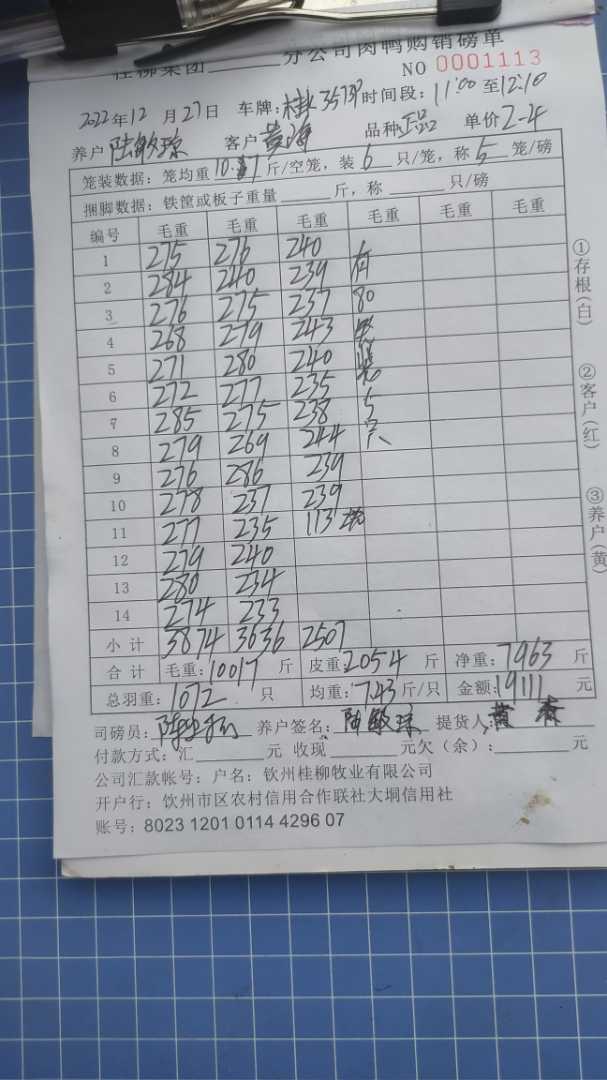 桂柳集团______分公司肉鸭购销磅单
NO 0001113
2022年12月27日 车牌: 时间段:11:00至12:10
养户 陆敏琼 客户 黄海 品种 正品 单价 2-4
笼装数据:笼均重 斤/空笼,装 6 只/笼,称 5 笼/磅
捆脚数据:铁筐或板子重量______斤,称______只/磅
编号 毛重 毛重 毛重 毛重 毛重 毛重
1 275 276 240
2 284 240 239 有
3 276 275 237 80
4 268 279 243
5 271 280 240
6 272 277 235
7 285 275 238 5
8 279 269 244 只
9 276 286 239
10 278 237 239
11 277 235 113
12 279 240
13 280 234
14 274 233
小计 3874 3636 2507
合计 毛重:10017 斤 皮重:2054 斤 净重:7963 斤
总羽重:1072 只 均重:7.43 斤/只 金额:19111 元
司磅员: 养户签名:陆敏琼 提货人:黄
付款方式:汇______元 收现______元欠(余):______元
公司汇款帐号:户名:钦州桂柳牧业有限公司
开户行:钦州市区农村信用合作联社大垌信用社
账号:8023 1201 0114 4296 07
①存根(白)
②客户(红)
③养户(黄)